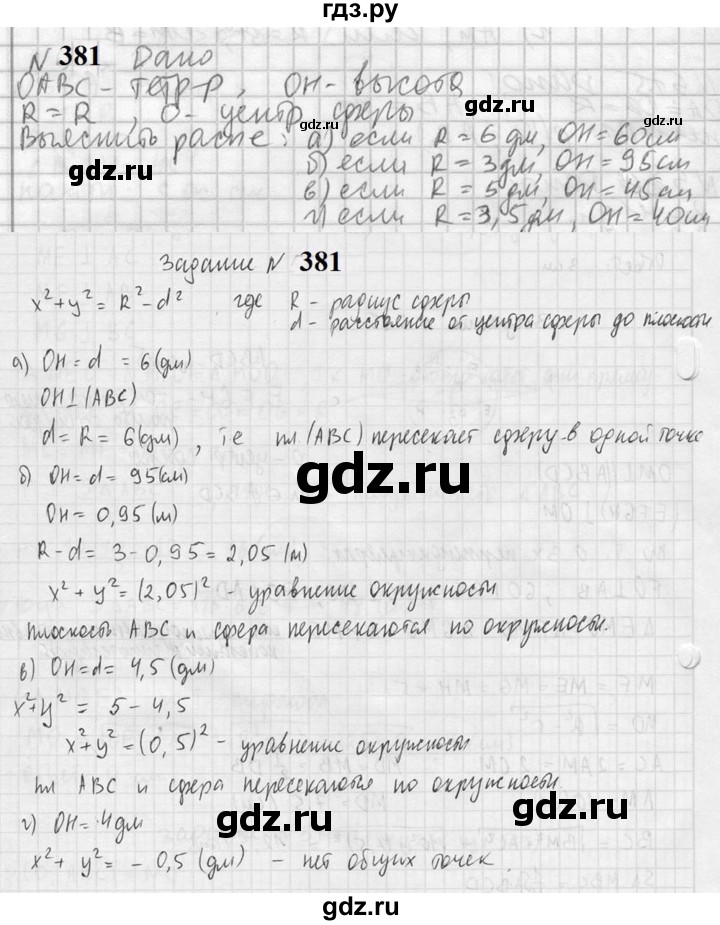 гдз.ру
N 381 Дано
OABC - тетр-р, OH - высота
R = R, O - центр сферы
Выяснить распо: а) если R = 6 дм, OH = 60см
б) если R = 3дм, OH = 95см
в) если R = 5 дм, OH = 45см
г) если R = 3,5дм, OH = 40см
gdz.ru gdz.ru
Задание N 381
x² + y² = R² - d² где R - радиус сферы
d - расстояние от центра сферы до плоскости
а) OH = d = 6 (дм)
OH ⊥ (ABC)
d = R = 6 (дм), т.е пл. (ABC) пересекает сферу в одной точке
б) OH = d = 95 (см)
gdz.ru
OH = 0,95 (м)
R - d = 3 - 0,95 = 2,05 (м)
x² + y² = (2,05)² - уравнение окружности
Плоскость ABC и сфера пересекаются по окружности.
в) OH = d = 4,5 (дм)
x² + y² = 5 - 4,5
x² + y² = (0,5)² - уравнение окружности
пл ABC и сфера пересекаются по окружности.
г) OH = 4 дм
gdz.ru gdz.ru
x² + y² = - 0,5 (дм) - нет общих точек.
gdz.ru